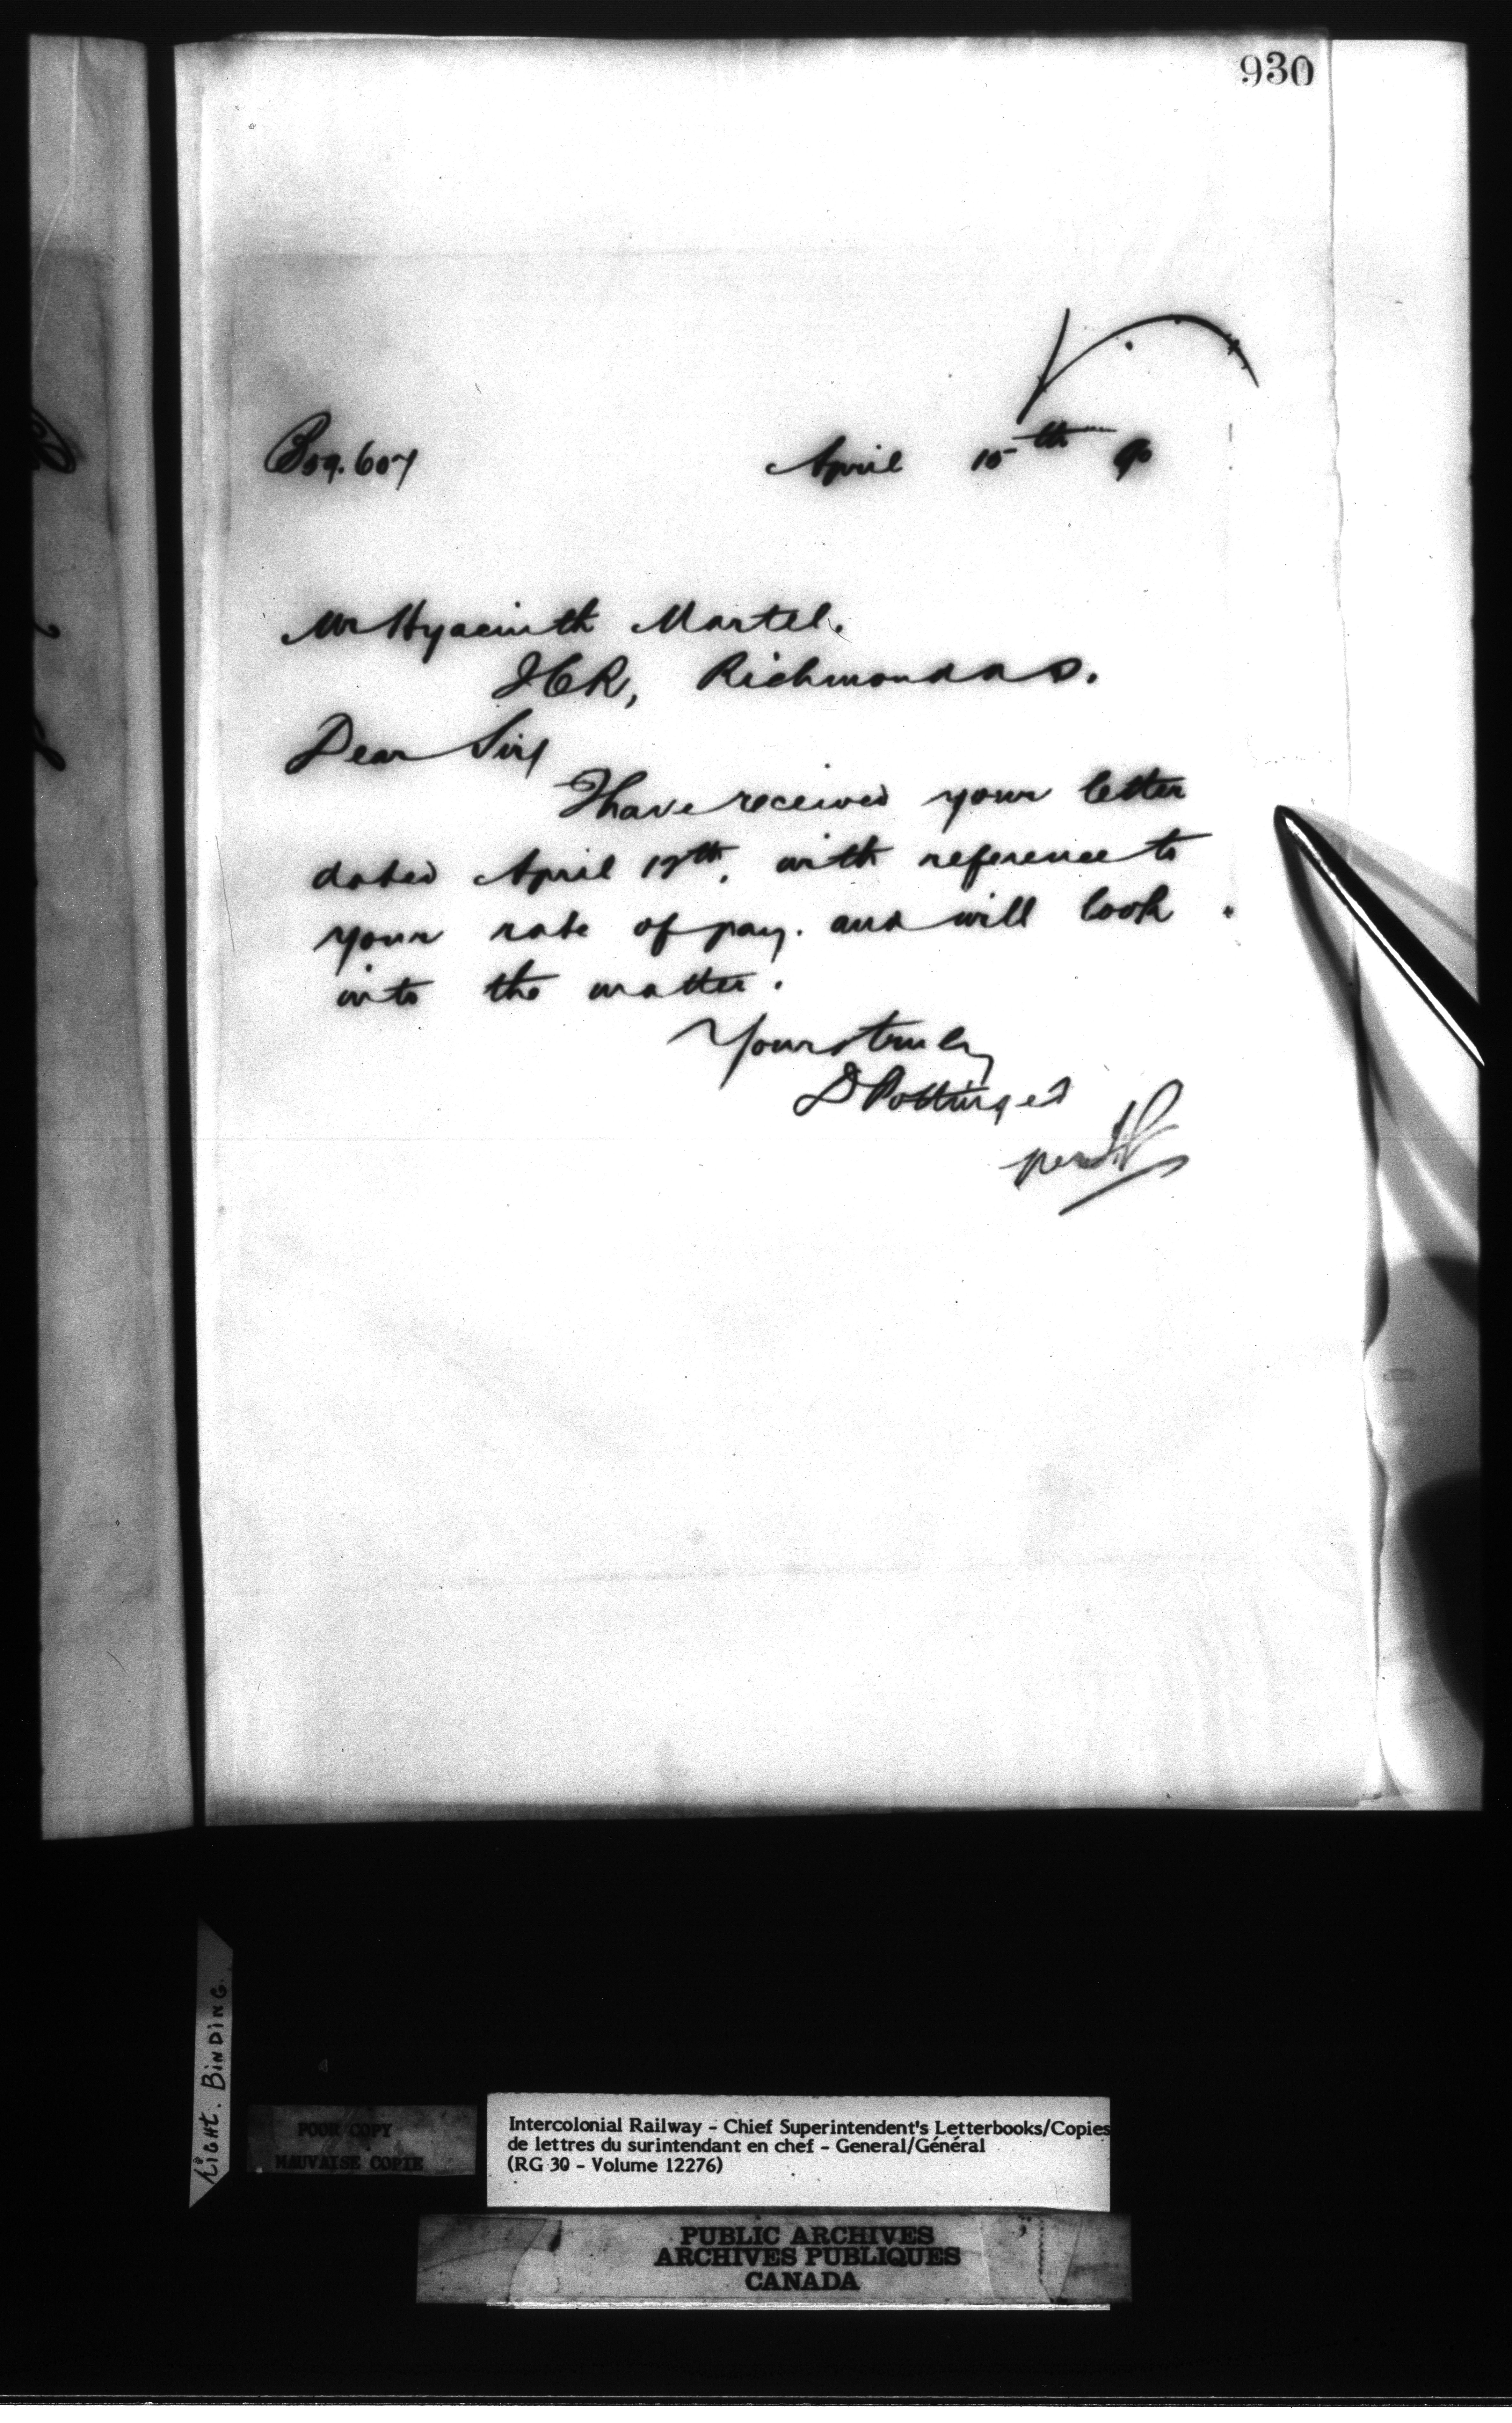 930
B59.607 April 15th 90
Mr Hyacinth Martel.
ICR, Richmond
Dear Sir,
I have received your letter
dated April 12th, with reference to
your rate of pay. and will look
into the matter.
Yours truly
D Pottinger
per
Tight. Binding.
POOR COPY
MAUVAISE COPIE
Intercolonial Railway - Chief Superintendent's Letterbooks/Copies
de lettres du surintendant en chef - General/Général
(RG 30 - Volume 12276)
PUBLIC ARCHIVES
ARCHIVES PUBLIQUES
CANADA